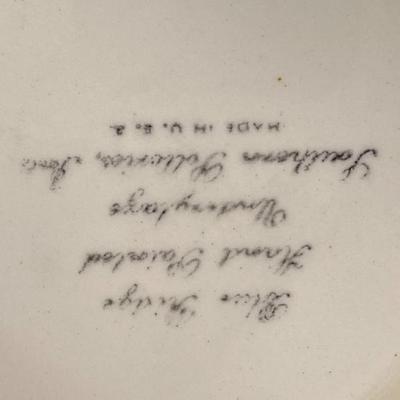 Blue Ridge
Hand Painted
Underglaze
Southern Potteries, Inc.
MADE IN U. S. A.